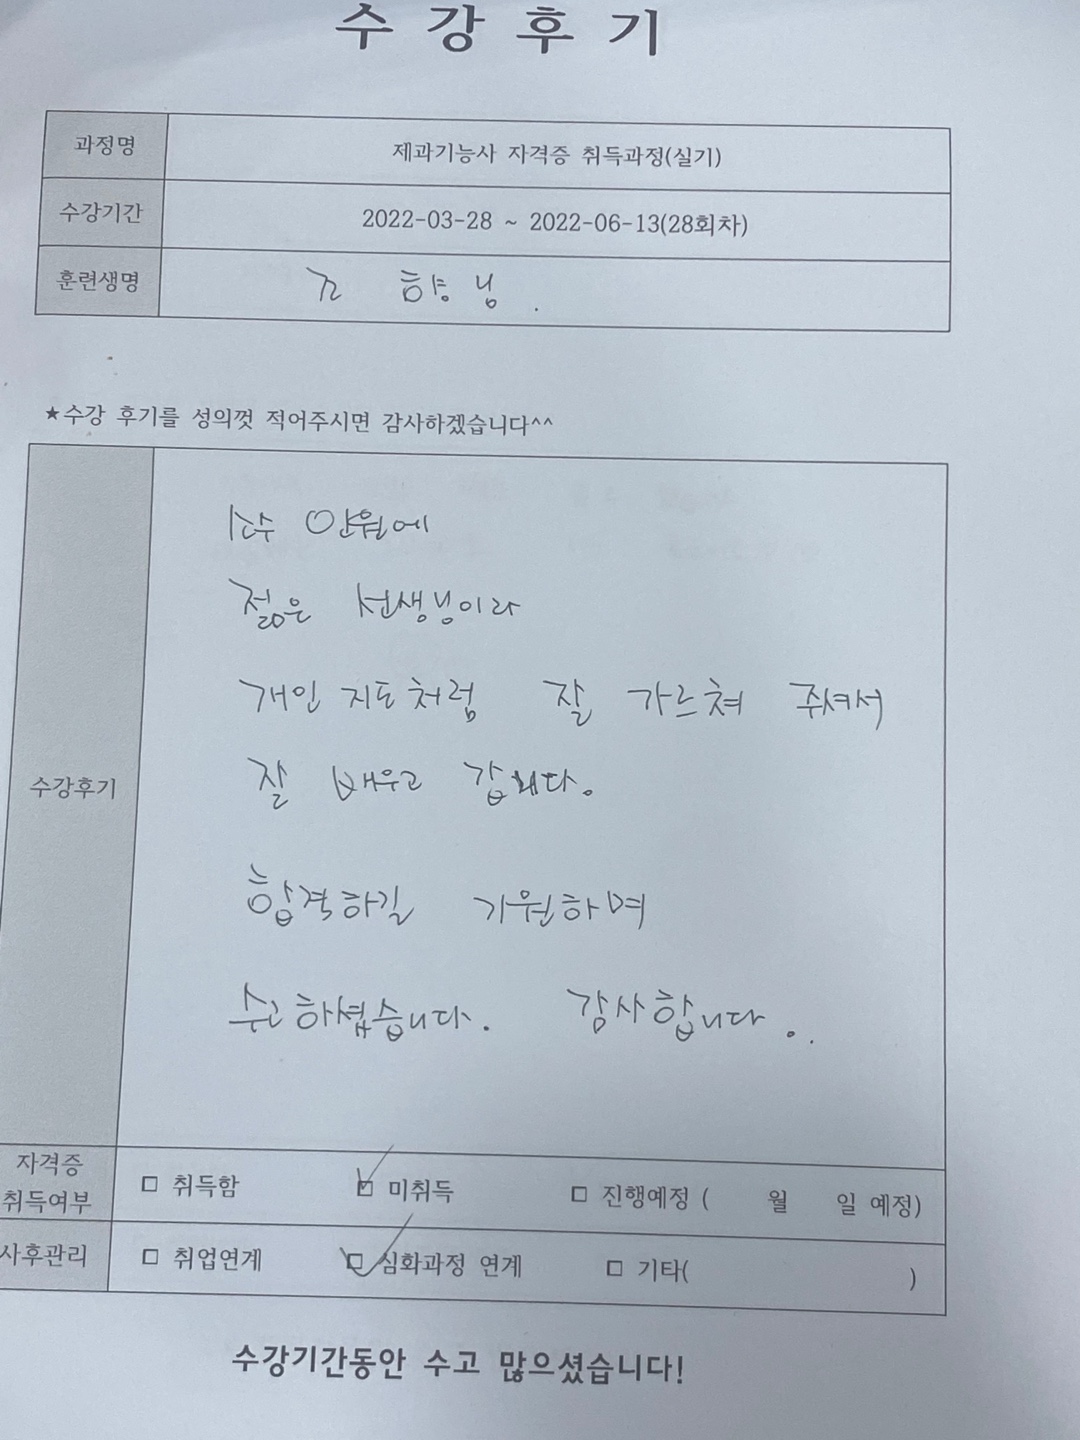 수강후기
과정명 제과기능사 자격증 취득과정(실기)
수강기간 2022-03-28 ~ 2022-06-13(28회차)
훈련생명 조 향 닝.
★수강 후기를 성의껏 적어주시면 감사하겠습니다^^
수강후기
소수 인원에
젊은 선생님이라
개인 지도처럼 잘 가르쳐 주셔서
잘 배우고 갑니다.
합격하길 기원하며
수고하셨습니다. 감사합니다..
자격증 취득여부 □ 취득함 ☑ 미취득 □ 진행예정 ( 월 일 예정)
사후관리 □ 취업연계 ☑ 심화과정 연계 □ 기타( )
수강기간동안 수고 많으셨습니다!